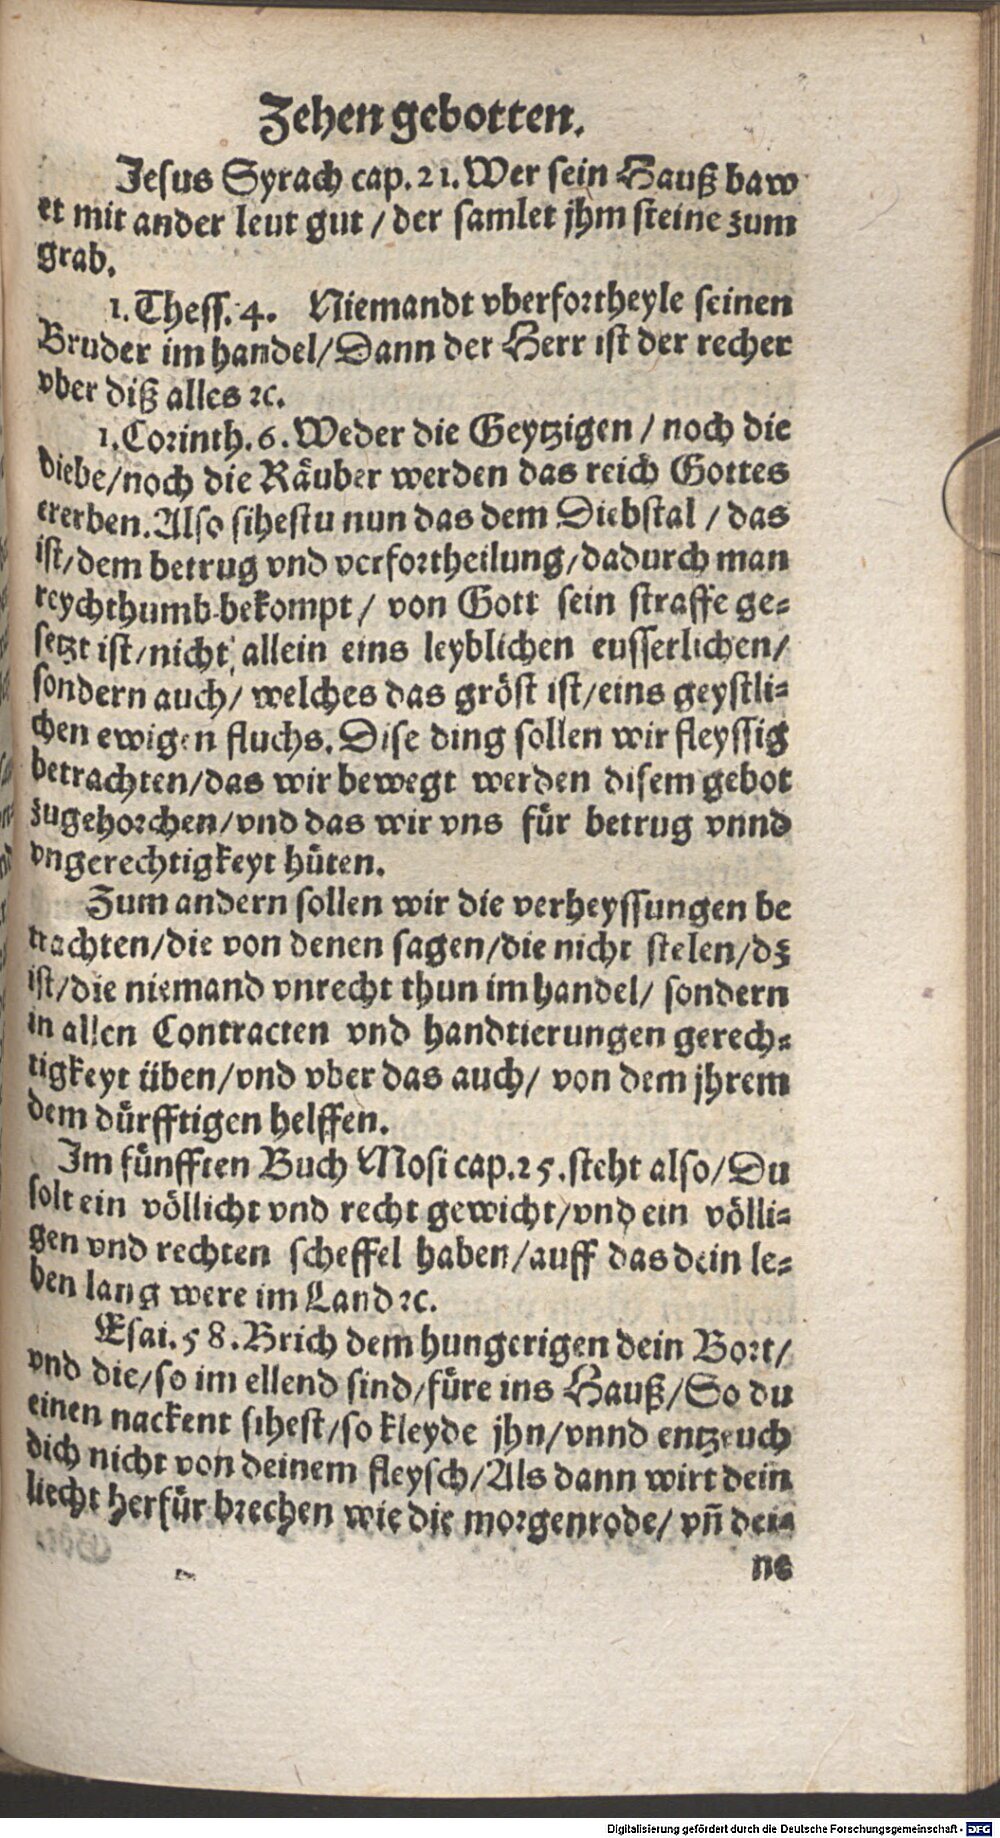 Zehen gebotten.
Jesus Syrach cap. 21. Wer sein Hauß baw
et mit ander leut gut / der samlet jhm steine zum
grab.
1. Thess. 4. Niemandt vberfortheyle seinen
Bruder im handel / Dann der Herr ist der recher
vber diß alles ꝛc.
1. Corinth. 6. Weder die Geytzigen / noch die
diebe / noch die Räuber werden das reich Gottes
ererben. Also sihestu nun das dem Diebstal / das
ist / dem betrug vnd verfortheilung / dadurch man
reychthumb bekompt / von Gott sein straffe ge⸗
setzt ist / nicht allein eins leyblichen eusserlichen /
sondern auch / welches das gröst ist / eins geystli⸗
chen ewigen fluchs. Dise ding sollen wir fleyssig
betrachten / das wir bewegt werden disem gebot
zugehorchen / vnd das wir vns für betrug vnnd
vngerechtigkeyt hüten.
Zum andern sollen wir die verheyssungen be
trachten / die von denen sagen / die nicht stelen / dz
ist / die niemand vnrecht thun im handel / sondern
in allen Contracten vnd handtierungen gerech⸗
tigkeyt üben / vnd vber das auch / von dem jhrem
dem dürfftigen helffen.
Im fünfften Buch Mosi cap. 25. steht also / Du
solt ein völlicht vnd recht gewicht / vnd ein völli⸗
gen vnd rechten scheffel haben / auff das dein le⸗
ben lang were im Land ꝛc.
Esai. 58. Brich dem hungerigen dein Bort /
vnd die / so im ellend sind / füre ins Hauß / So du
einen nackent sihest / so kleyde jhn / vnnd entzeuch
dich nicht von deinem fleysch / Als dann wirt dein
liecht herfür brechen wie die morgenrode / vñ dei⸗
ne
Digitalisierung gefördert durch die Deutsche Forschungsgemeinschaft - DFG